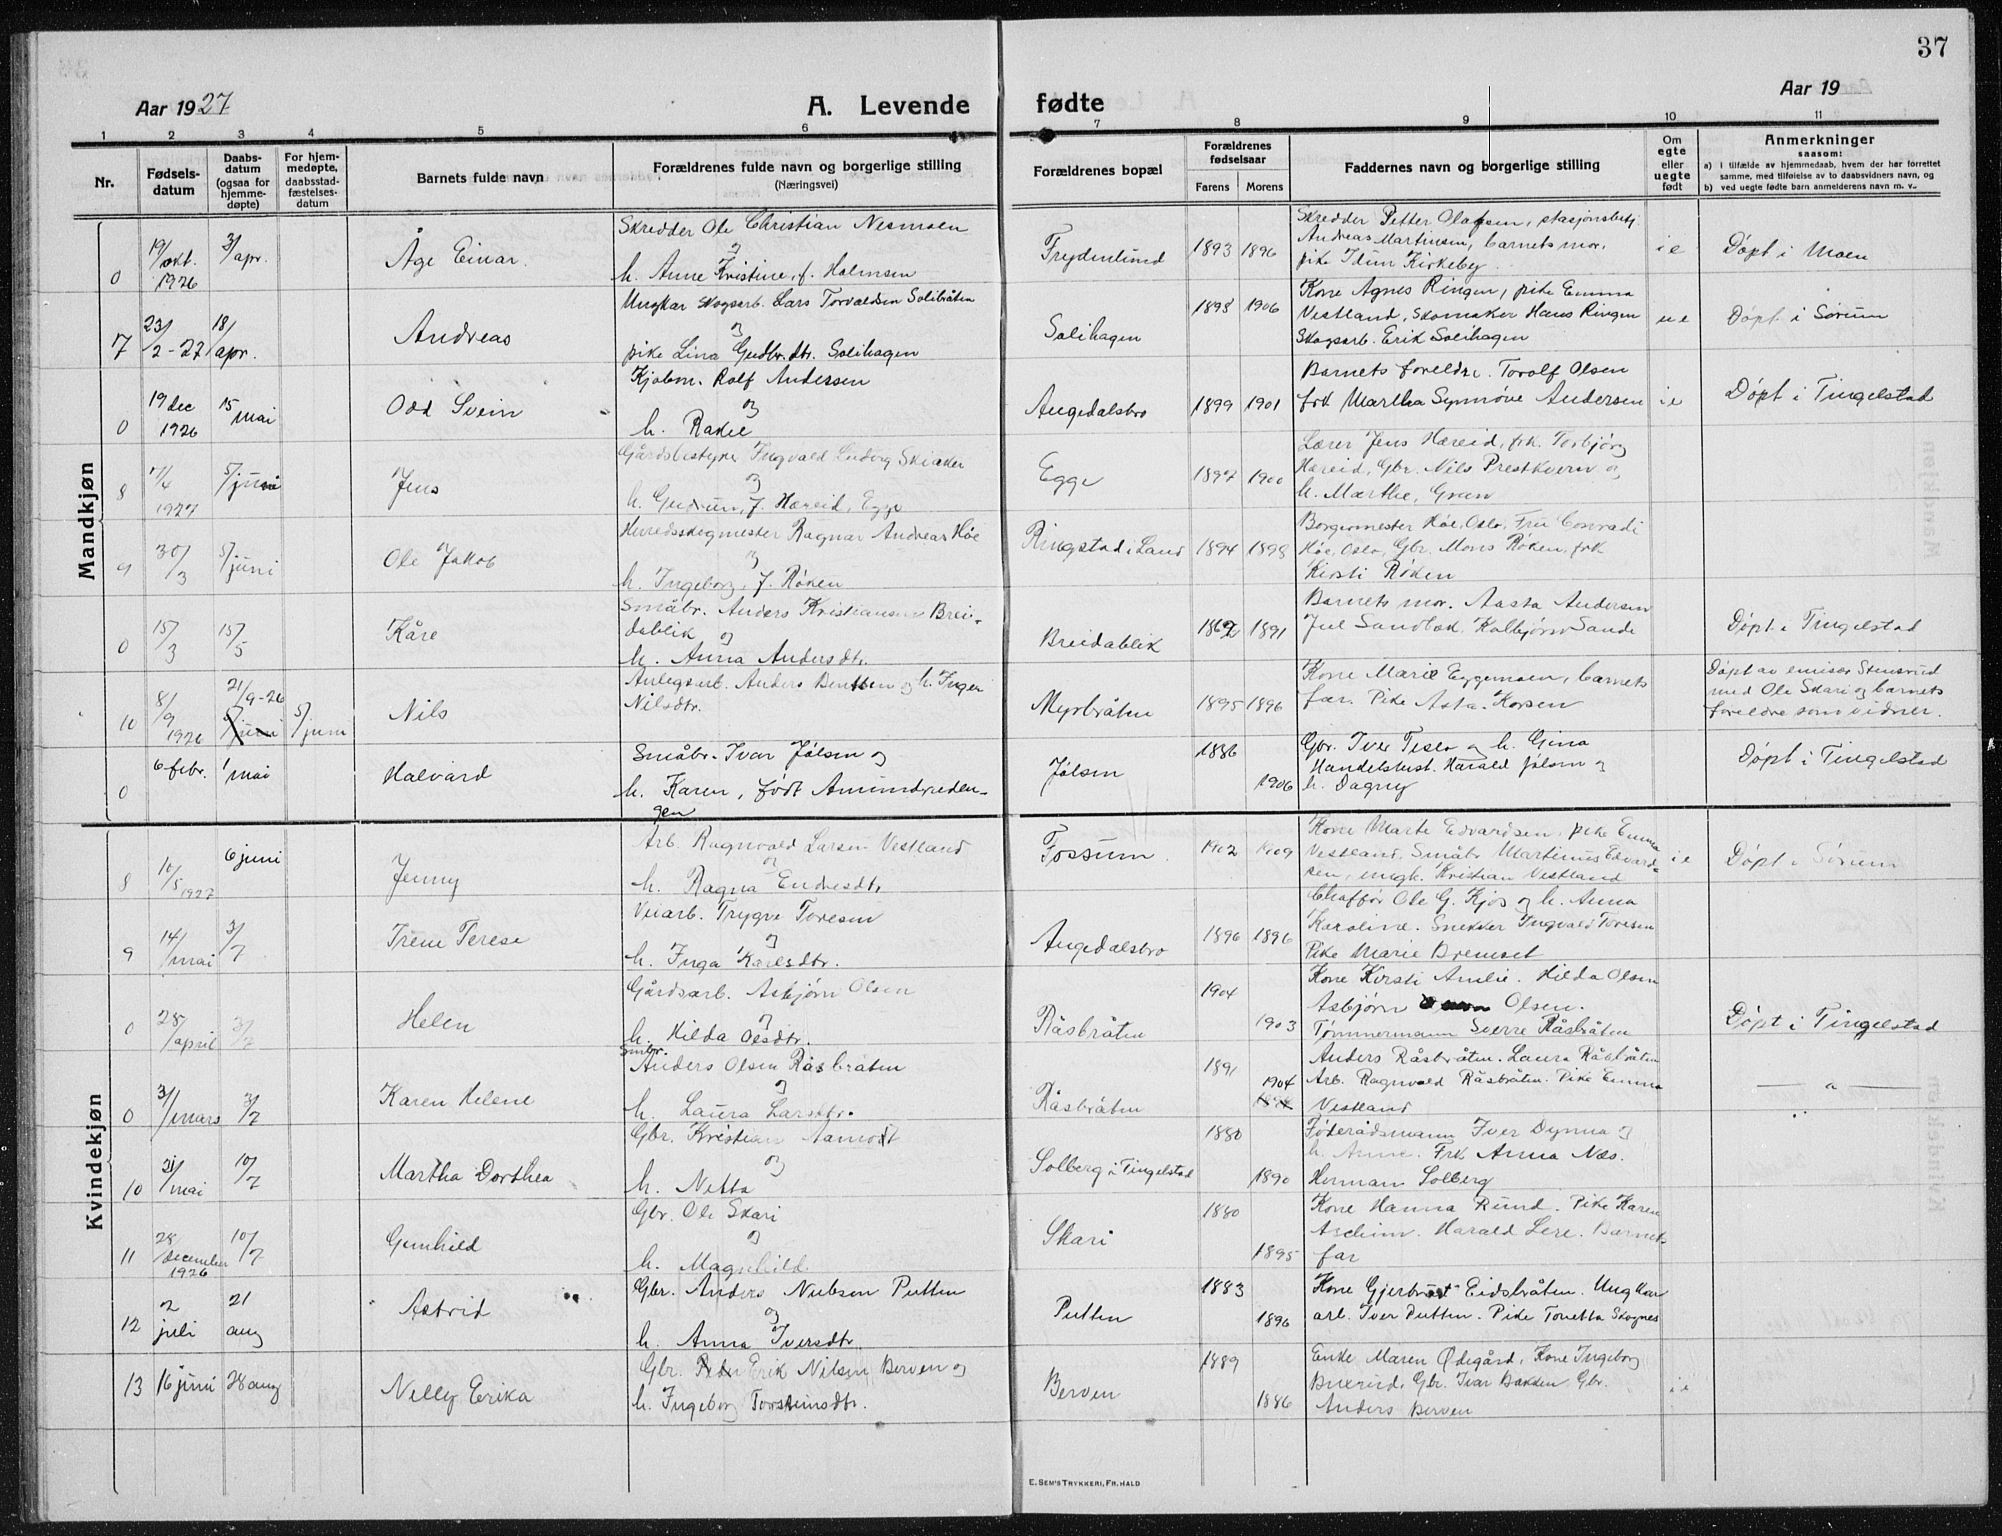 37
Aar 1927
A. Levende fødte
Aar 19
1 2 3 4 5 6 7 8 9 10 11
Nr.
Fødsels-
datum
Daabs-
datum
(ogsaa for
hjemme-
døpte)
For hjem-
medøpte,
daabsstad-
fæstelses-
datum
Barnets fulde navn
Forældrenes fulde navn og borgerlige stilling
(Næringsvei)
Forældrenes bopæl
Forældrenes
fødselsaar
Farens Morens
Faddernes navn og borgerlige stilling
Om
egte
eller
uegte
født
Anmerkninger
saasom:
a) i tilfælde av hjemmedaab, hvem der har forrettet
samme, med tilføielse av to daabsvidners navn, og
b) ved uegte fødte barn anmelderens navn m. v.
Mandkjøn
0
19/okt.
1926
3/apr.
Åge Einar.
Skredder Ole Christian Nesmoen
og
h. Anne Kristine, f. Holmsen
Frydenlund
1893 1896
Skredder Petter Olafsen, stasjonsbetj.
Andreas Martinsen, barnets mor,
pike Idun Kirkeby
i e
Døpt i Moen
7
23/
2-27
18/
apr.
Andreas
Ungkar skogsarb. Lars Torvaldsen Solibråten
og
pike Lina Gudbr.dtr. Solihagen
Solihagen
1898 1906
Kone Agnes Ringen, pike Emma
Vestland, Skomaker Hans Ringen
Skogsarb. Erik Solihagen
u e
Døpt i Sørum
0
19 dec
1926
15 mai
Odd Svein
Kjøbm. Rolf Andersen
og
h. Rakel
Augedalsbro
1899 1901
Barnets foreldre. Torolf Olsen
frk Martha Synnøve Andersen
i e
Døpt i Tingelstad
8
7/4
1927
5/juni
Jens
Gårdsbestyrer Ingvald Ludvig Skiaker
og
h. Gudrun, f. Hæreid, Egge
Egge
1897 1900
Lærer Jens Hæreid, frk. Torbjørg
Hæreid, Gbr. Nils Prestkvern og
h. Marthe, Gran
9
30/3
5/juni
Ole Jakob
Herredsskogmester Ragnar Andreas Høe
og
h. Ingeborg, f. Røken
Ringstad i Land
1894 1898
Borgermester Høe, Oslo, Fru Conradi
Høe, Oslo, Gbr. Mons Røken, frk
Kirsti Røken
0
15/3
15/5
Kåre
Småbr. Anders Kristiansen Brei-
dablik
og
h. Anna Andersdtr.
Breidablik
1891
Barnets mor. Aasta Andersen
Juel Sandbak. Kolbjørn Sande
Døpt i Tingelstad
10
8/9
1926
21/9-26
5/juni
5/juni
Nils
Anlegsarb. Anders Bentsen og h. Inger
Nilsdtr.
Myrbråten
1895 1896
Kone Marie Eggemoen, barnets
far. Pike Asta Korsen
Døpt av emisær Stensrud
med Ole Skari og barnets
foreldre som vidner.
0
6 febr.
1 mai
Halvard
Småbr. Ivar Jølsen og
h. Karen, født Amundrøden-
gen
Jølsen
1886
1906
Gbr. Iver Teslo og h. Gina
Handelsbest. Harald Jølsen og
h. Dagny
Døpt i Tingelstad
Kvindekjøn
8
10/5 1927
6 juni
Jenny
Arb. Ragnvald Larsen Vestland
og
h. Ragna Endresdtr.
Fossum.
1902 1909
Kone Marte Edvardsen, pike Emma
Vestland, Småbr Martinus Edvard-
sen, ungk. Kristian Vestland
i e
Døpt i Sørum
9
14/mai
3/7
Irene Terese
Veiarb. Trygve Toresen
og
h. Inga Karlsdtr.
Augedalsbro
1896 1896
Chaffør Ole G. Kjos og h. Anna
Karoline. Snekker Ingvald Toresen
Pike Marie Bremset
0
28/april
3/7
Helen
Gårdsarb. Asbjørn Olsen
og
h. Hilda Olsdtr.
Råsbråten
1904
1903
Kone Kirsti Amlie. Hilda Olsen
Asbjørn Olsen.
Tømmermann Sverre Råsbråten
Døpt i Tingelstad
0
31/mars
3/7
Karen Helene
Småbr.
Anders Olsen Råsbråten
og
h. Laura Larsdtr.
Råsbråten
1891
1904
Anders Råsbråten. Laura Råsbråten
Arb. Ragnvald Råsbråten. Pike Emma
Vestland
— " —
10
21/mai
10/7
Martha Dorthea
Gbr. Kristian Aamodt
og
h. Netta
Solberg i Tingelstad
1880
1890
Føderådsmann Iver Dynna og
h. Anne. Frk Anna Næs.
Herman Solberg
11
28/december
1926
10/7
Gunhild
Gbr. Ole Skari
og
h. Magnhild
Skari
1880
1895
Kone Hanna Rund. Pike Karen
Aschim. Harald Lere. Barnets
far
12
2 juli
21 aug
Astrid
Gbr. Anders Nielsen Putten
og
h. Anna Iversdtr.
Putten
1883
1896
Kone Gjertrud Eidsbråten. Ungkar
arb. Iver Putten. Pike Tonetta Skognes
13
16 juni
28 aug
Nelly Erika
Gbr. Peder Erik Nilsen Berven og
h. Ingeborg Torsteinsdtr.
Berven
1889
1886
Enke Maren Ødegård, Kone Ingeborg
Buerud, Gbr. Ivar Bakken Gbr.
Anders Berven
i e
E. SEM'S TRYKKERI, FR. HALD